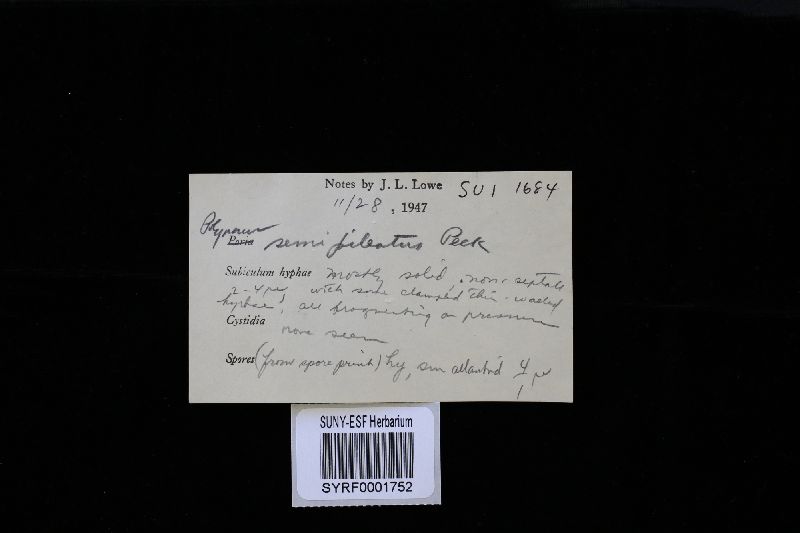 Notes by J. L. Lowe SUI 1684
11/28, 1947
Polyporus
Poria semipileatus Peck
Subiculum hyphae mostly solid, non-septate
2-4µ, with some clamped thin-walled
hyphae, all fragmenting on pressure
Cystidia
none seen
Spores (from spore print) hy, sm allantoid 4 µ
1
SUNY-ESF Herbarium
SYRF0001752